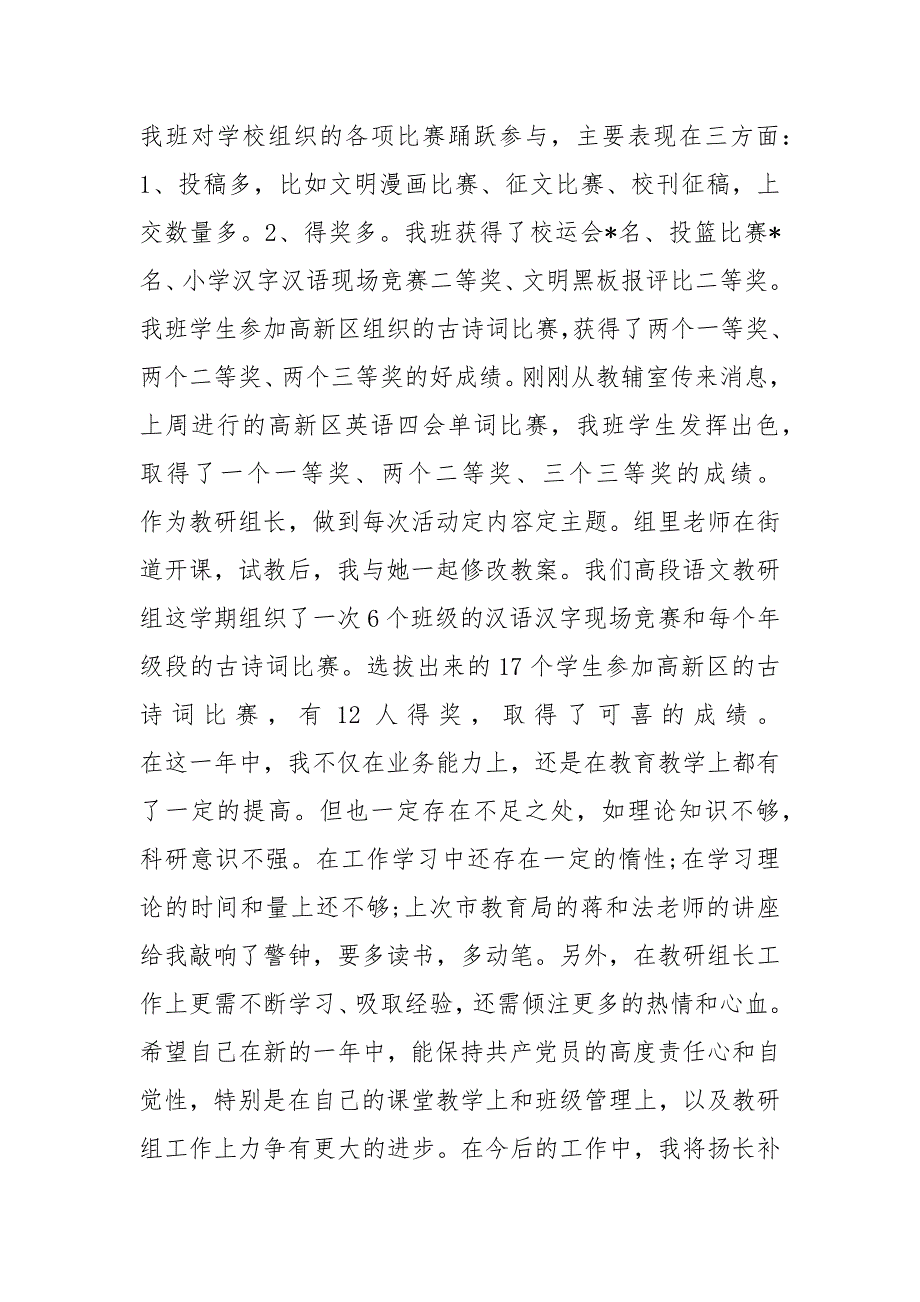 我班对学校组织的各项比赛踊跃参与，主要表现在三方面：
1、投稿多，比如文明漫画比赛、征文比赛、校刊征稿，上
交数量多。2、得奖多。我班获得了校运会*名、投篮比赛*
名、小学汉字汉语现场竞赛二等奖、文明黑板报评比二等奖。
我班学生参加高新区组织的古诗词比赛，获得了两个一等奖、
两个二等奖、两个三等奖的好成绩。刚刚从教辅室传来消息，
上周进行的高新区英语四会单词比赛，我班学生发挥出色，
取得了一个一等奖、两个二等奖、三个三等奖的成绩。
作为教研组长，做到每次活动定内容定主题。组里老师在街
道开课，试教后，我与她一起修改教案。我们高段语文教研
组这学期组织了一次 6 个班级的汉语汉字现场竞赛和每个年
级段的古诗词比赛。选拔出来的 17 个学生参加高新区的古
诗词比赛，有 12 人得奖，取得了可喜的成绩。
在这一年中，我不仅在业务能力上，还是在教育教学上都有
了一定的提高。但也一定存在不足之处，如理论知识不够，
科研意识不强。在工作学习中还存在一定的惰性;在学习理
论的时间和量上还不够;上次市教育局的蒋和法老师的讲座
给我敲响了警钟，要多读书，多动笔。另外，在教研组长工
作上更需不断学习、吸取经验，还需倾注更多的热情和心血。
希望自己在新的一年中，能保持共产党员的高度责任心和自
觉性，特别是在自己的课堂教学上和班级管理上，以及教研
组工作上力争有更大的进步。在今后的工作中，我将扬长补